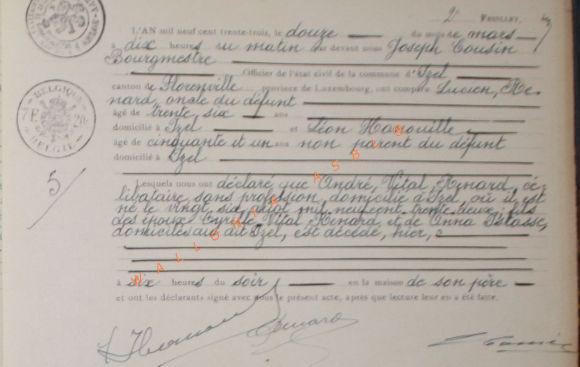 2e FEUILLET,
L'AN mil neuf cent trente-trois, le douze du mois de mars
à dix heures du matin par devant nous Joseph Cousin
Bourgmestre
Officier de l'état civil de la commune d'Izel
canton de Florenville province de Luxembourg, ont comparu Lucien, Hé-
nard, oncle du défunt
âgé de trente six ans
domicilié à Izel et Léon
âgé de cinquante et un ans non parent du défunt
domicilié à Izel
5/
Lesquels nous ont déclaré que André, Vital, Hénard, cé-
libataire, sans profession, domicilié à Izel, où il est
né le vingt six août mil neuf cent trente deux, fils
des époux Cyrille Vital Hénard et de Anna
domiciliés au dit Izel, est décédé, hier, à
à six heures du soir en la maison de son père
et ont les déclarants signé avec nous le présent acte, après que lecture leur en a été faite.
BELGIQUE
F. 20
BELGIE
WALLONIE ASBL